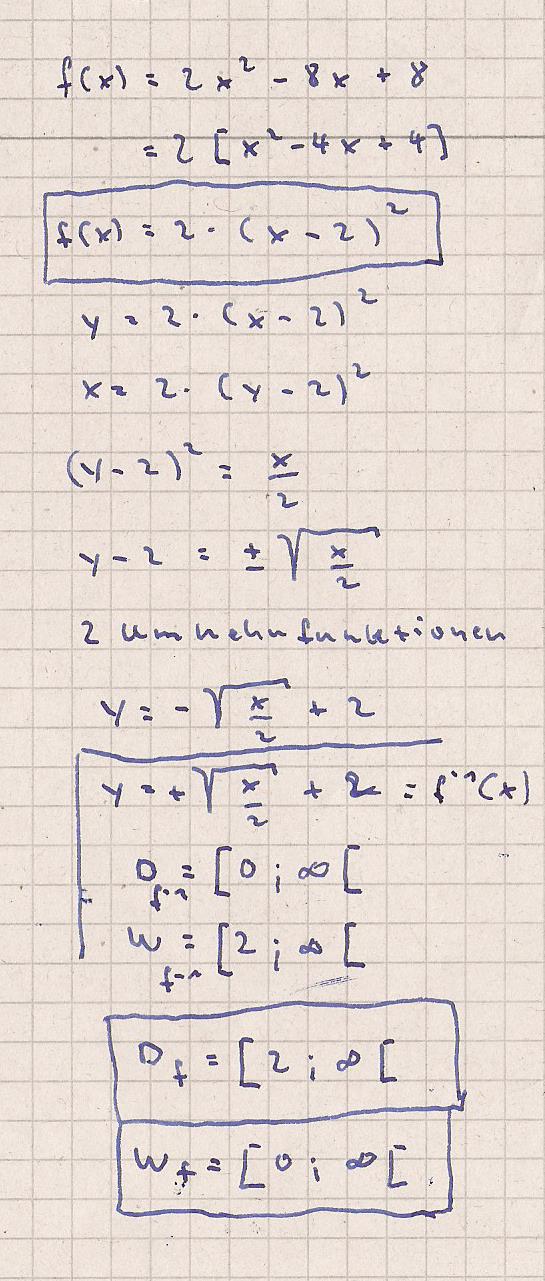 f(x) = 2x² - 8x + 8
= 2 [x² - 4x + 4]
f(x) = 2 · (x - 2)²
y = 2 · (x - 2)²
x = 2 · (y - 2)²
(y - 2)² = x/2
y - 2 = ± √(x/2)
2 Umkehrfunktionen
y = - √(x/2) + 2
y = + √(x/2) + 2 = f⁻¹(x)
D f⁻¹ = [0 ; ∞ [
W f⁻¹ = [2 ; ∞ [
D f = [2 ; ∞ [
W f = [0 ; ∞ [